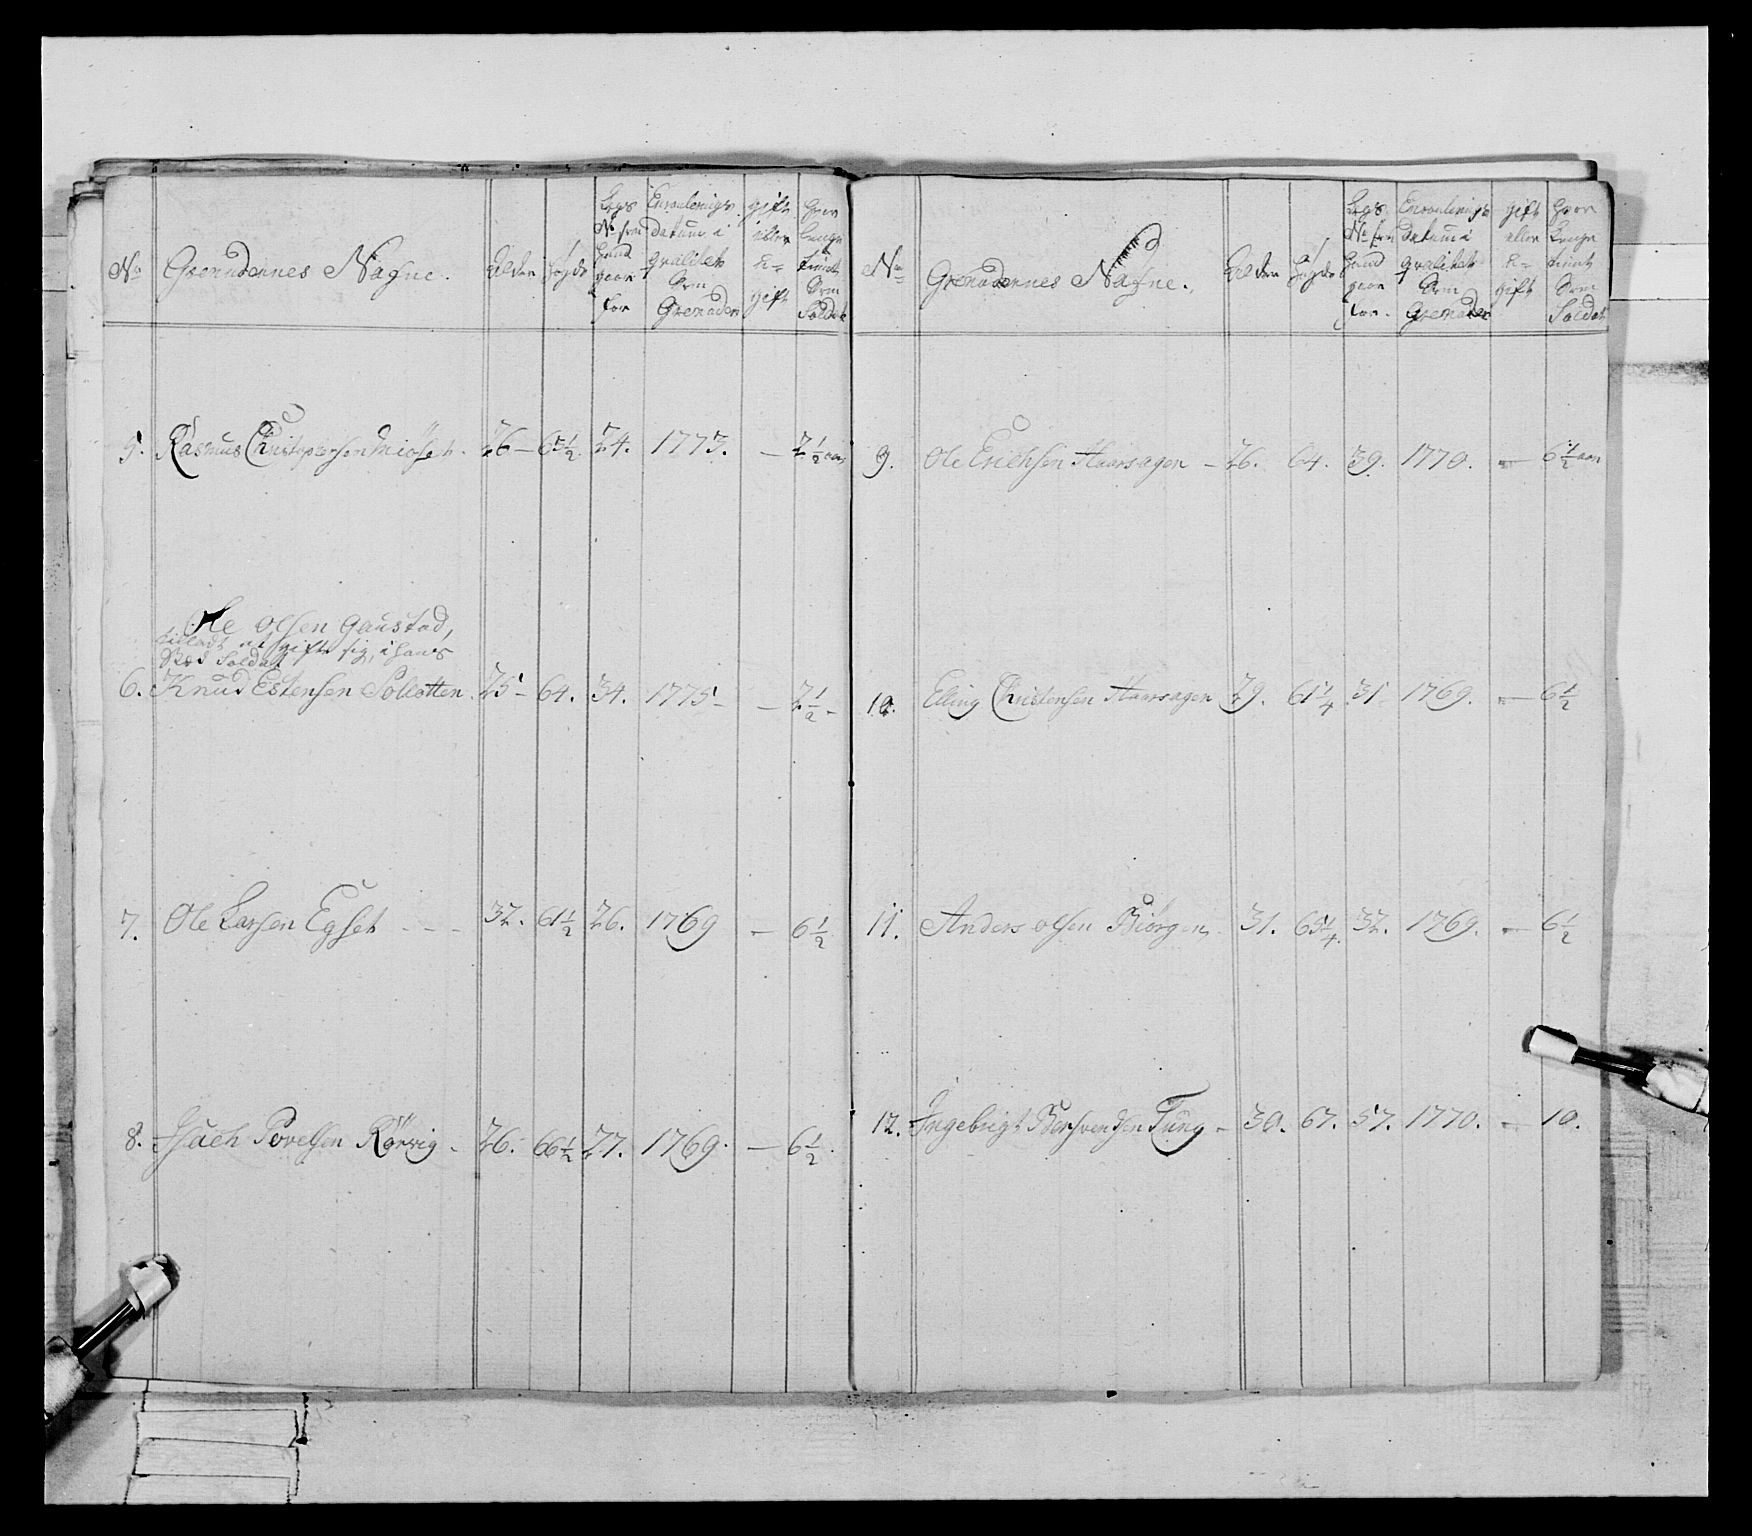 No Grenadeernes Nafne. Alder Høyde Legs No som hand giør for Enroulerings datum i qvalitet Som Grenader gift eller U= gift hvor lenge tient Som Soldat
5. Rasmus Christophersen Miøset. 26 – 65½ 24. 1773. – 2½ aar
Ole Olsen Gaustad,
tilladt at gifte sig, i hans
Sted Soldat
6. Knud Estensen Solcotten 25 – 64. 34. 1775 – – 2½ –
7. Ole Larsen Egset - - - 32. 61½ 26. 1769 – 6½
8. Isach Povelsen Rørvig - 26. 66½ 27. 1769. – 6½.
No Grenadeernes Nafne. Alder Høyde Legs No som hand giør for. Enroulerings Datum i qvalitet Som Grenader gift eller U= gift hvor lenge tient Som Soldat
9. Ole Erichsen Haarsagen – 26. 64. 39. 1770. – 6½ aar
10. Elling Christensen Haarsagen 29. 61¼ 31 1769. – 6½
11. Anders Olsen Biørgen 31. 65¼. 32. 1769. – 6½
12. Ingebrigt Bersvendsen Tung – 30. 67. 57. 1770. – 10.